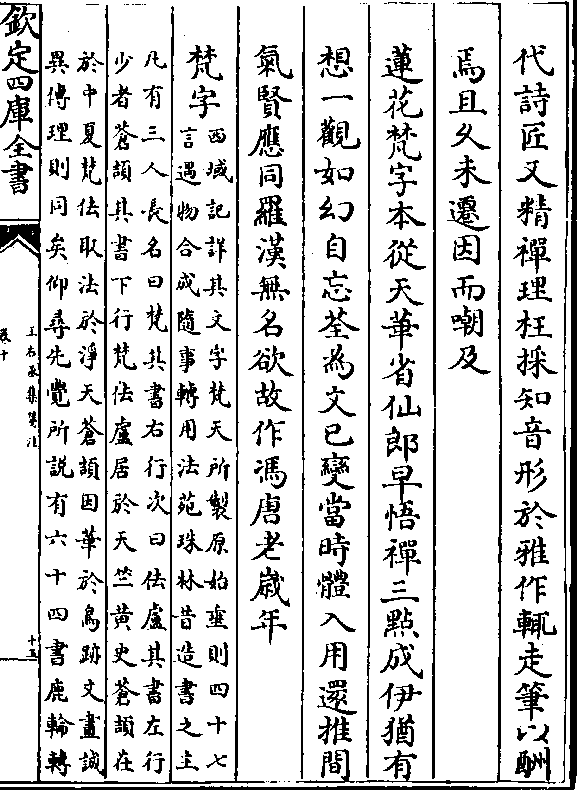 代詩匠又精禪理枉採知音形於雅作輒走筆以酬
焉且久未遷因而嘲及
蓮花梵字本從天華省仙郎早悟禪三點成伊猶有
想一觀如幻自忘荃為文已變當時體入用還推間
氣賢應同羅漢無名欲故作馮唐老嵗年
梵字
西域記詳其文字梵天所製原始垂則四十七
言遇物合成隨事轉用法苑珠林昔造書之主
凡有三人長名曰梵其書右行次曰佉盧其書左行
少者蒼頡其書下行梵佉盧居於天竺黄史蒼頡在
於中夏梵佉取法於淨天蒼頡因華於鳥跡文畫誠
異傳理則同矣仰尋先覺所説有六十四書鹿輪轉
欽定四庫全書
王右丞集箋注
卷十
十五